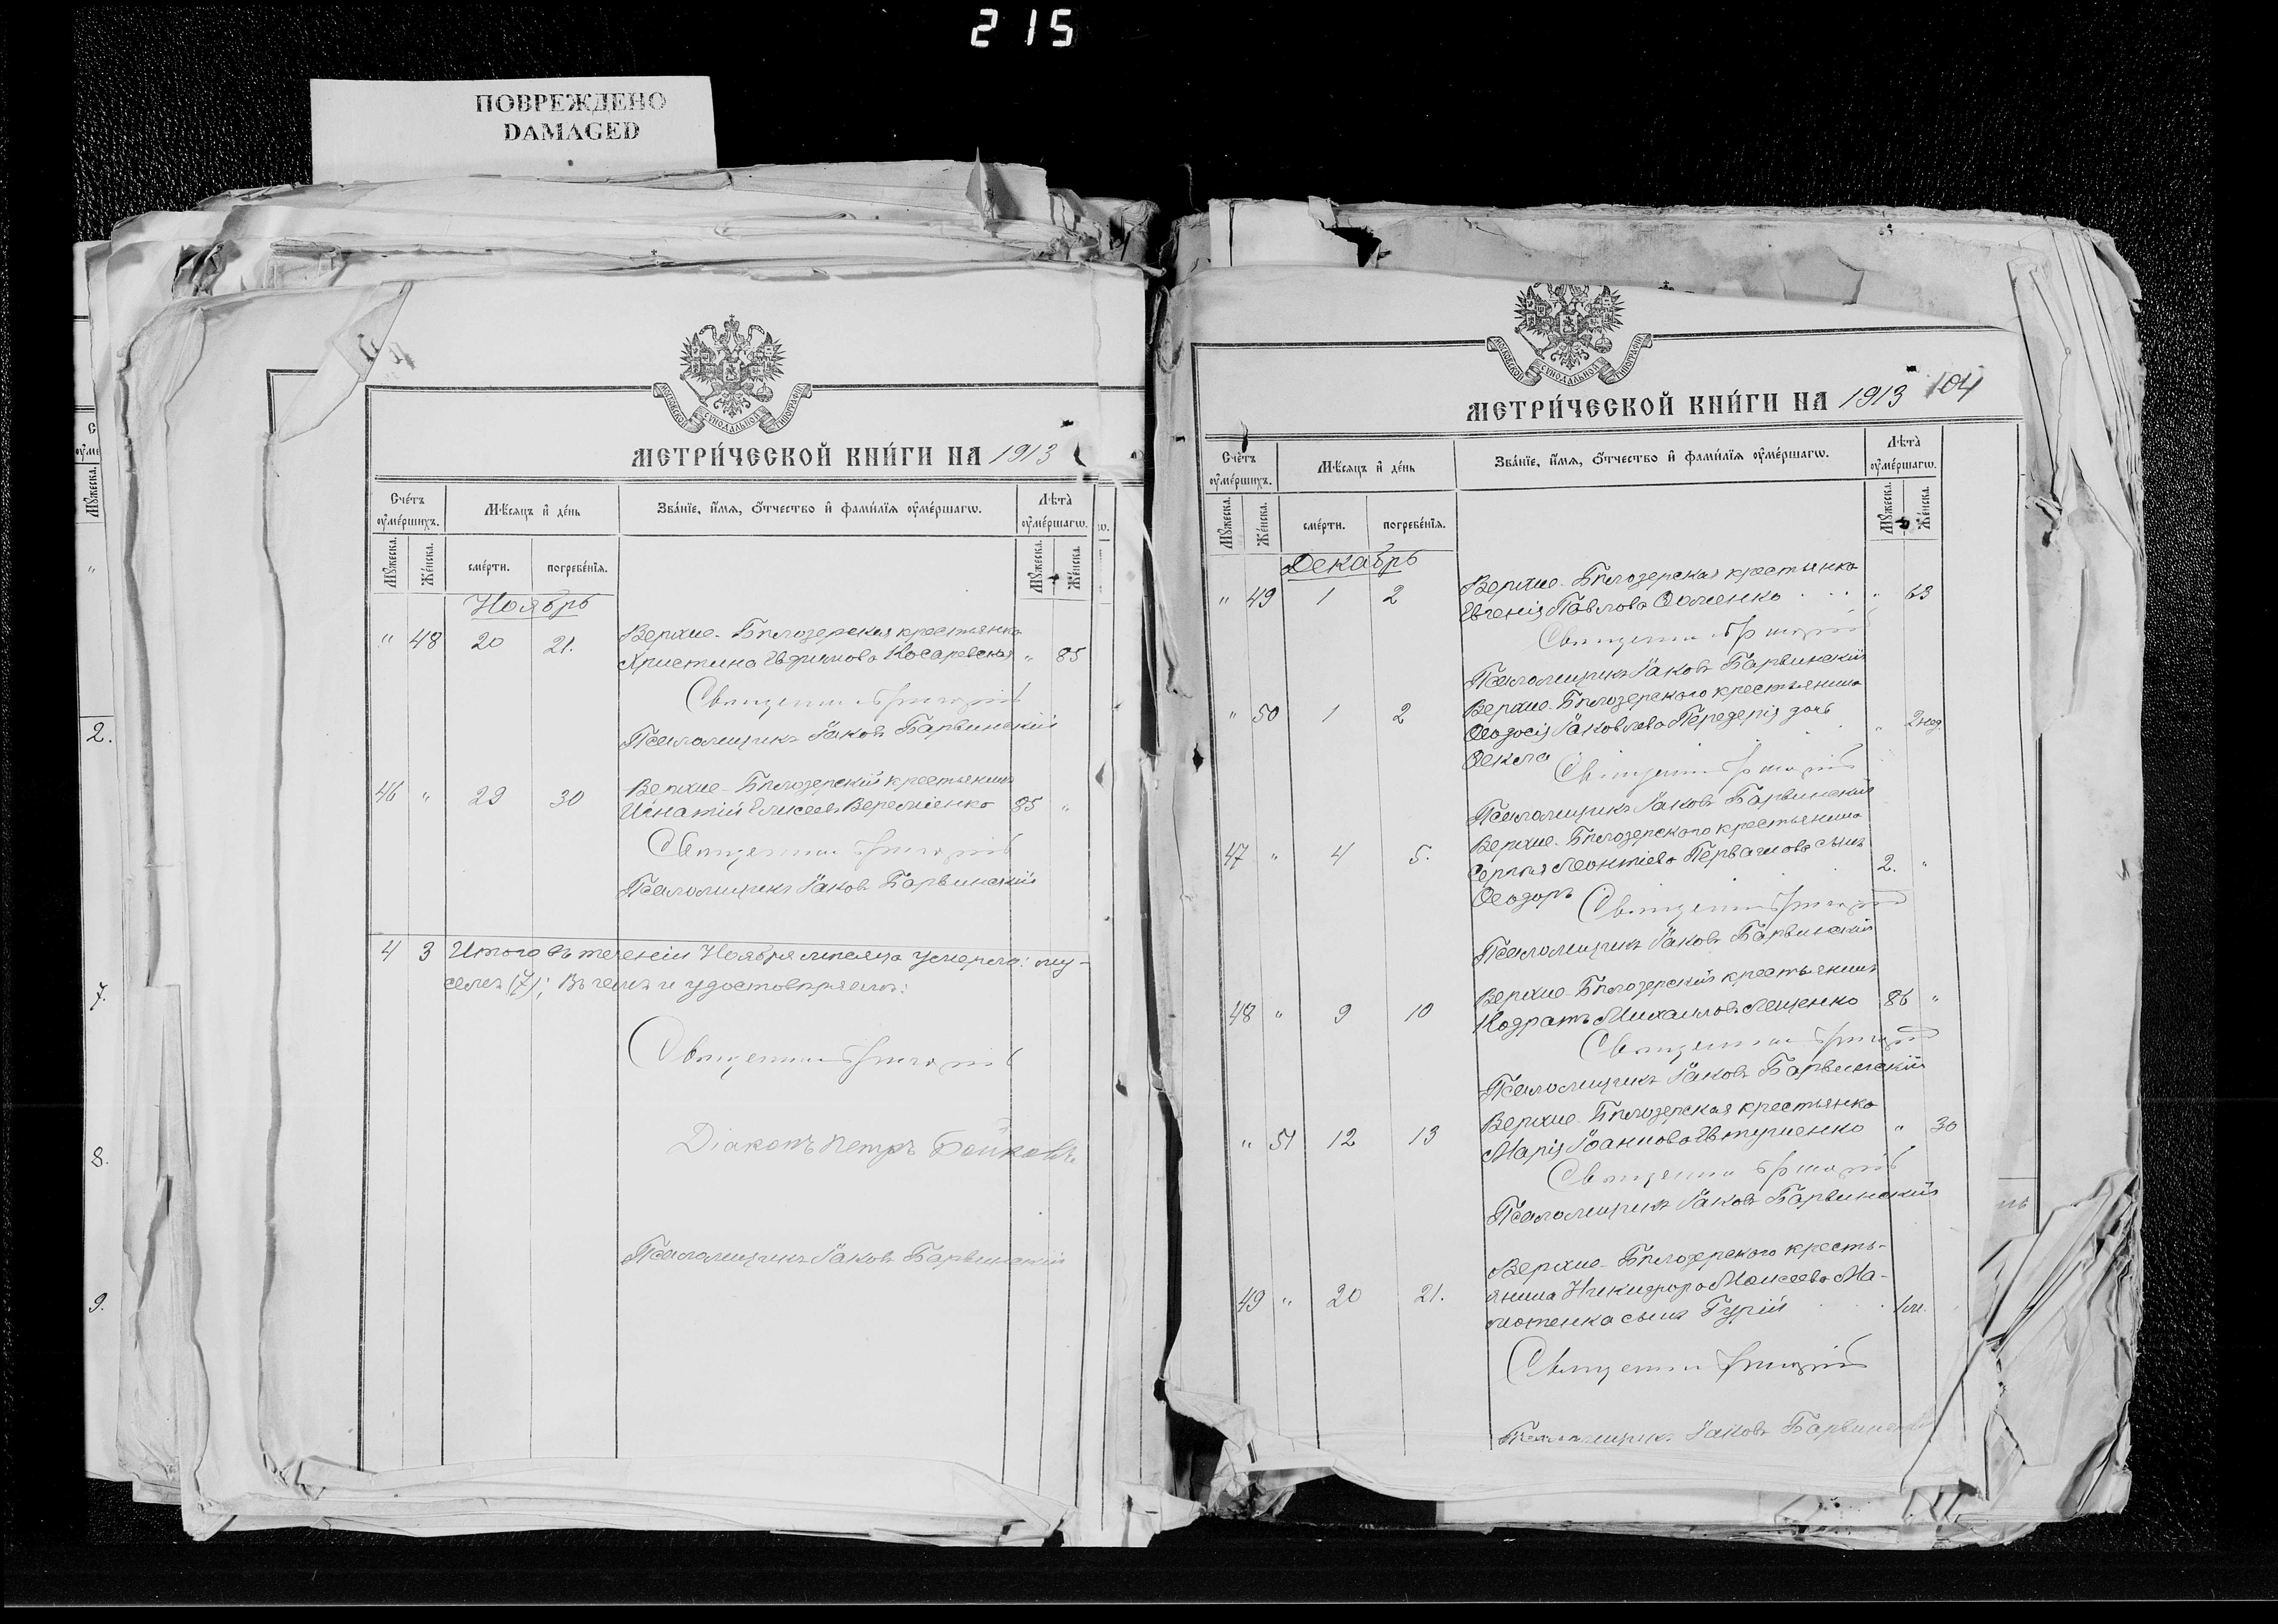 215
ПОВРЕЖДЕНО
DAMAGED
МОСКОВСКОЙ СѴНОДАЛЬНОЙ ТИПОГРАФІИ
МЕТРИ́ЧЕСКОЙ КНИ́ГИ НА 1913
Сче́тъ оумершихъ.
Мꙋжеска.
Же́нска.
Мѣ́сяцъ и҆ де́нь
сме́рти.
погребе́нїѧ.
Зва́нїе, и҆́мѧ, ѻ҆́тчество и҆ фами́лїѧ оу҆ме́ршагѡ.
Лѣ̑та̀ оу҆ме́ршагѡ.
Мꙋжеска.
Же́нска.
Ноябрь
" 48 20 21. Верхне-Бѣлозерская крестьянка
Христина Евфимова Косаревская " 85
Священник Григорій
Псаломщикъ Іаковъ Барвинскій
46 " 29 30 Верхне-Бѣлозерскій крестьянинъ
Игнатій Елисеевъ Веремѣенко 85 "
Священник Григорій
Псаломщикъ Іаковъ Барвинскій
4 3 Итого въ теченіи Ноября мѣсяца умерло: му-
семь (7); Въ чемъ и удостовѣряемъ:
Священник Григорій
Діаконъ Петръ Бойковъ.
Псаломщикъ Іаковъ Барвинскій
2.
7.
8.
9.
МОСКОВСКОЙ СѴНОДАЛЬНОЙ ТИПОГРАФІИ
МЕТРИ́ЧЕСКОЙ КНИ́ГИ НА 1913 104
Сче́тъ оумершихъ.
Мꙋжеска.
Же́нска.
Мѣ́сяцъ и҆ де́нь
сме́рти.
погребе́нїѧ.
Зва́нїе, и҆́мѧ, ѻ҆́тчество и҆ фами́лїѧ оу҆ме́ршагѡ.
Лѣ̑та̀ оу҆ме́ршагѡ.
Мꙋжеска.
Же́нска.
Декабрь
" 49 1 2 Верхне-Бѣлозерская крестьянка
Евгенія Павлова Фоменко " 63
Священник Григорій
Псаломщикъ Іаковъ Барвинскій
" 50 1 2 Верхне-Бѣлозерского крестьянина
Феодосія Іаковлева Передерія дочь " 2 нед.
Фекла
Священник Григорій
Псаломщикъ Іаковъ Барвинскій
47 " 4 5. Верхне-Бѣлозерского крестьянина
Сергѣя Леонтіева Первакова сынъ 2. "
Феодоръ
Священник Григорій
Псаломщикъ Іаковъ Барвинскій
48 " 9 10 Верхне-Бѣлозерскій крестьянинъ
Кодратъ Михаиловъ Лещенко 86 "
Священник Григорій
Псаломщикъ Іаковъ Барвинскій
" 51 12 13 Верхне-Бѣлозерская крестьянка
Марія Іоаннова Евтушенко " 30
Священник Григорій
Псаломщикъ Іаковъ Барвинскій
49 " 20 21. Верхне-Бѣлозерского кресть-
янина Никифора Моисеева Ма-
мотенка сынъ Гурій 1 м.
Священник Григорій
Псаломщикъ Іаковъ Барвинскій